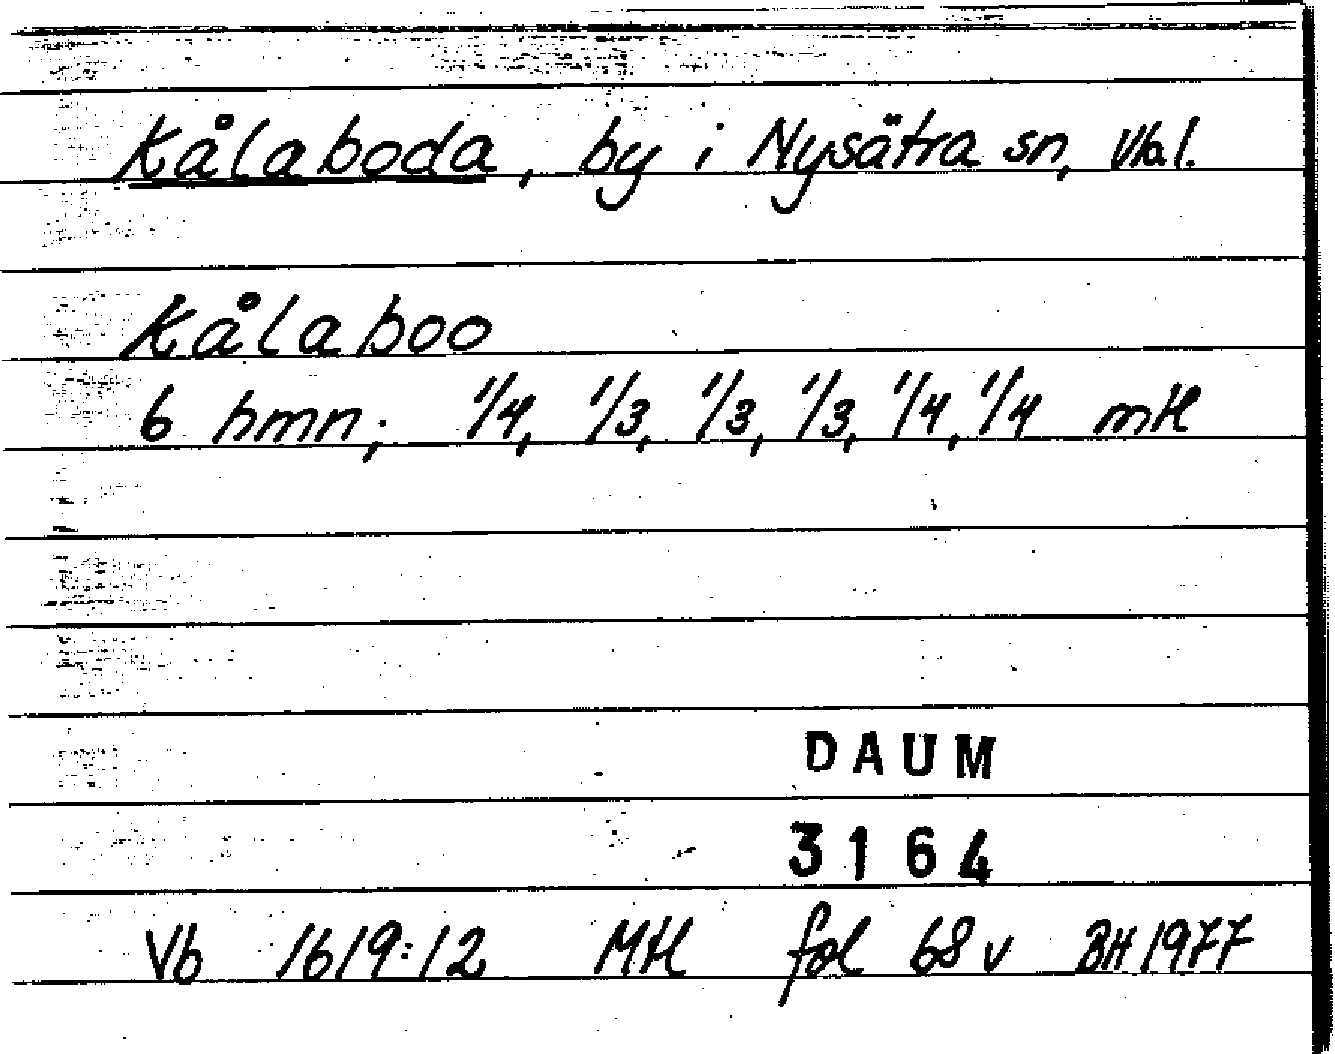 Kålaboda, by i Nysätra sn, Vbl.
Kålaboo
6 hmn; 1/4, 1/3, 1/3, 1/3, 1/4, 1/4 mtl
DAUM
3164
Vb 1619:12 Mtl fol 68 v BH 1977